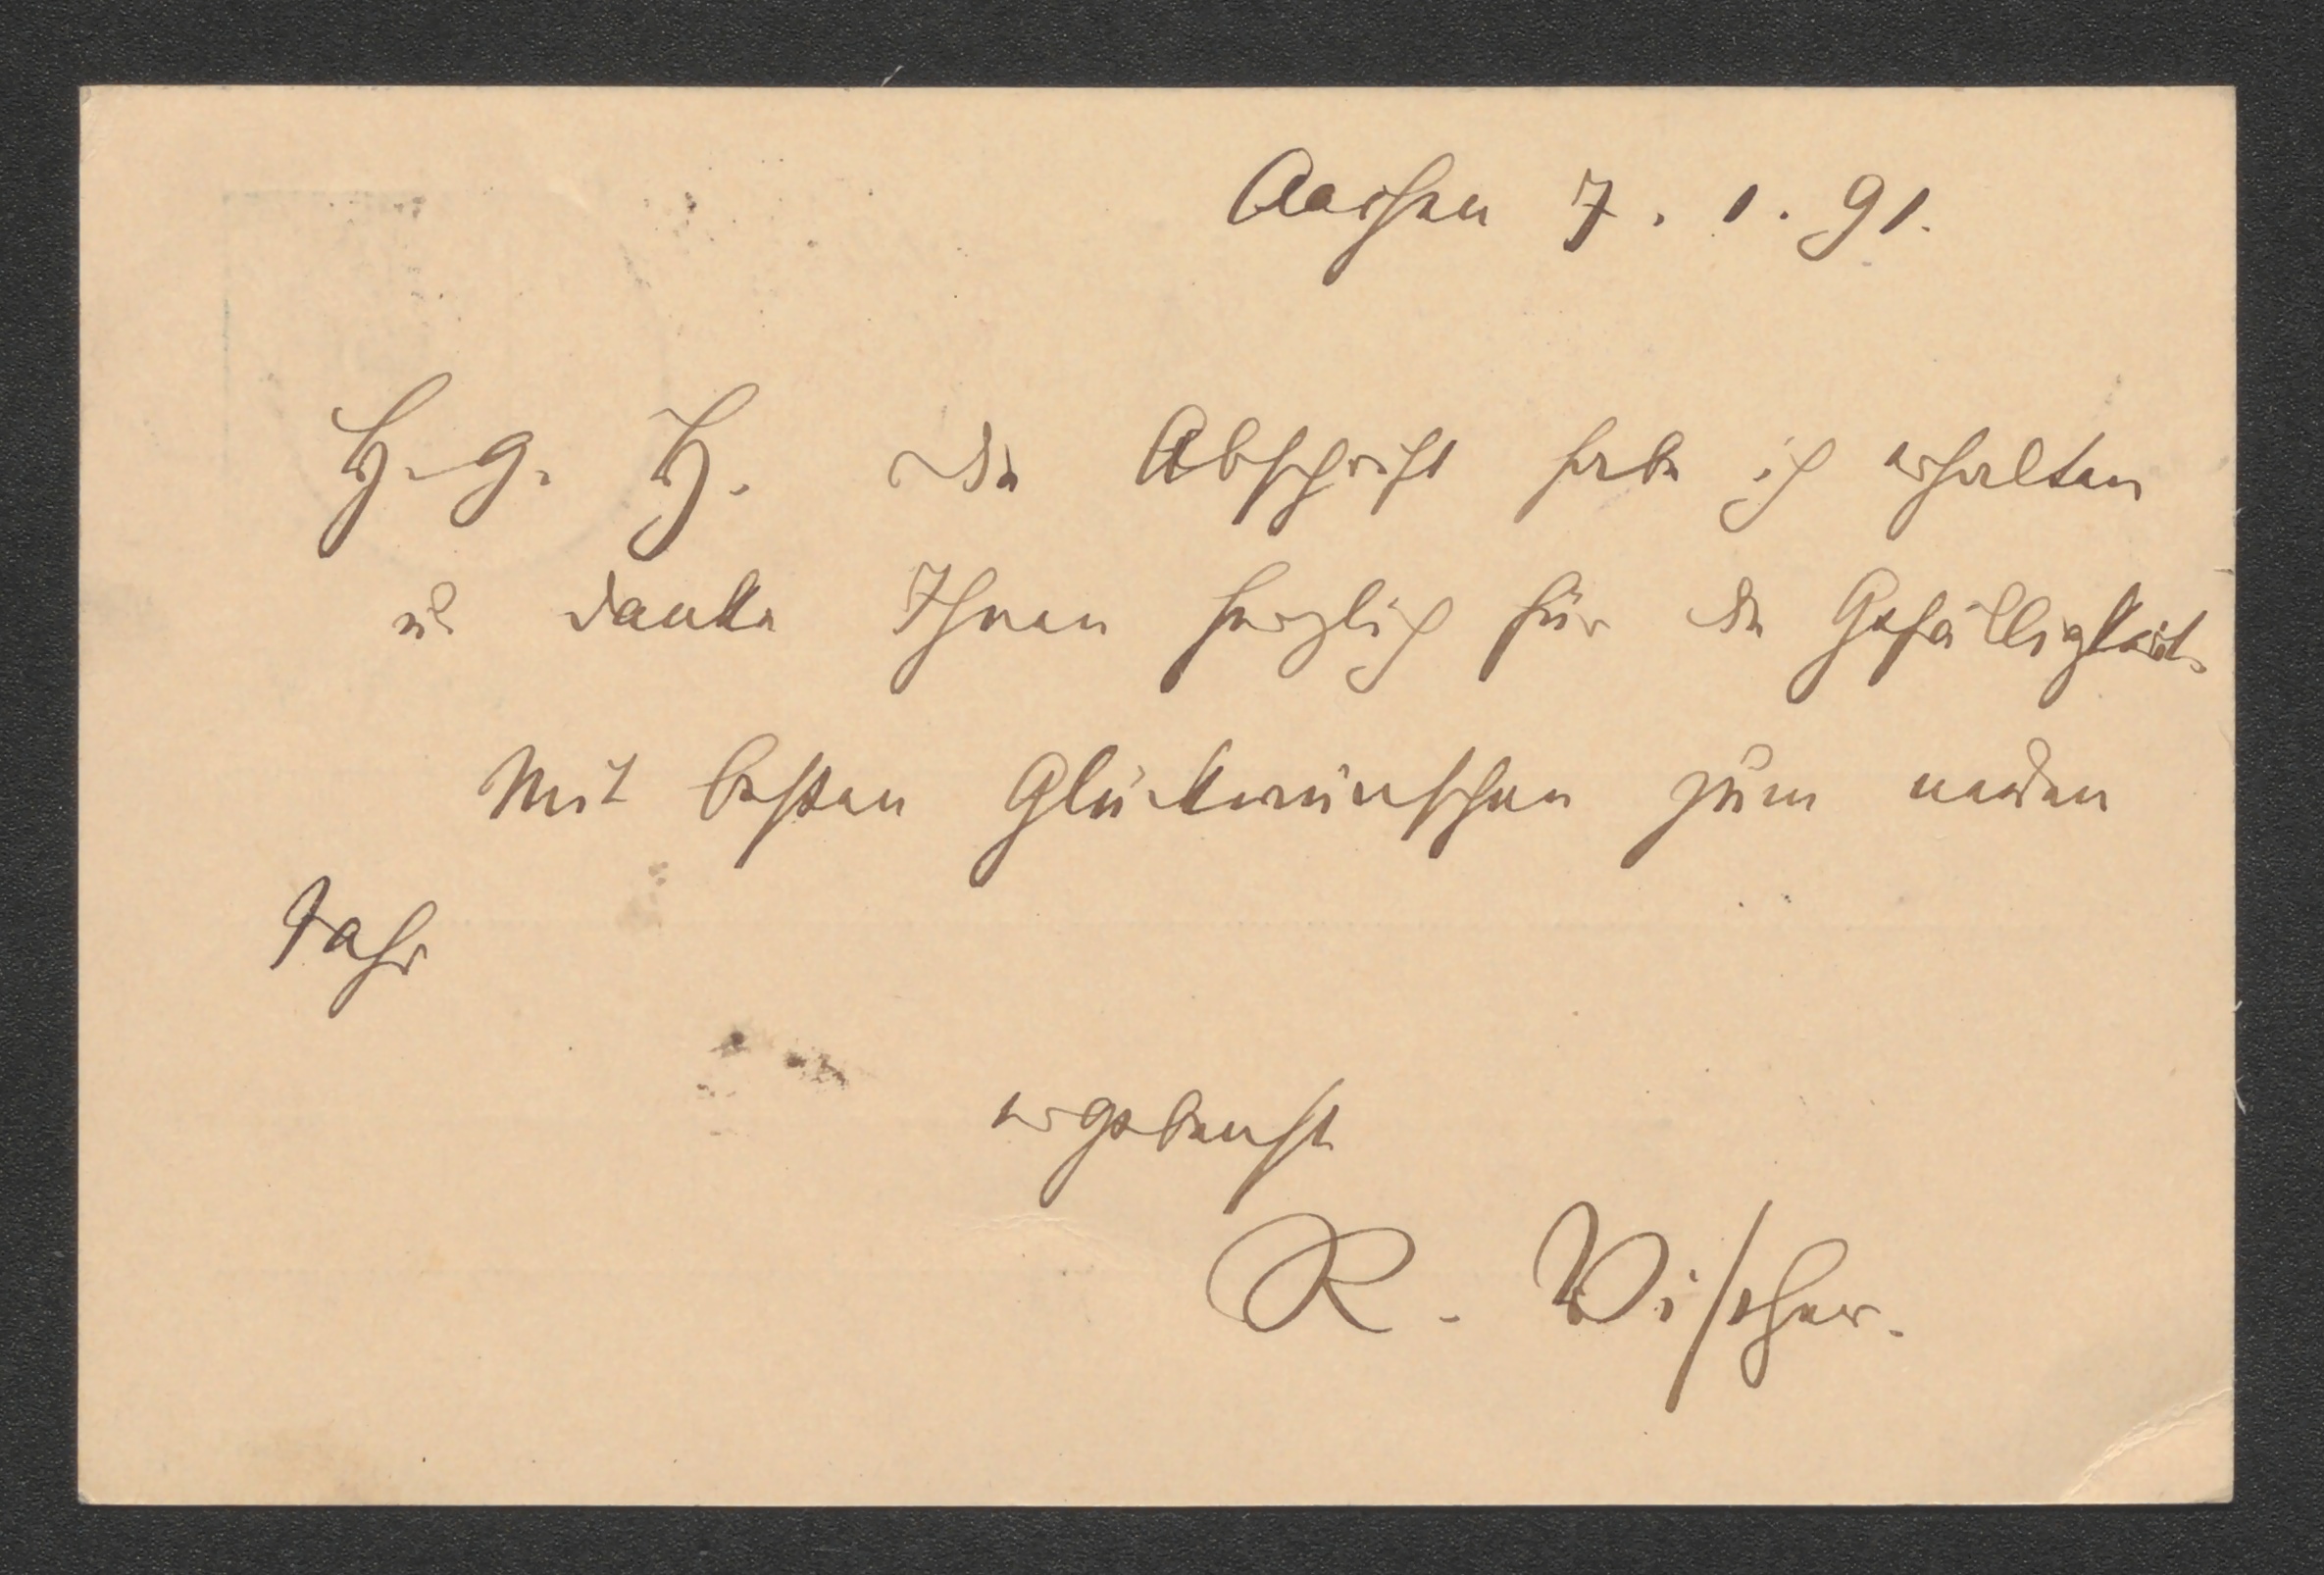 Aachen 7. 1. 91.
H. g. H. Die Abschrift habe ich erhalten
u. danke Ihnen herzlich für die Gefälligkeit.
Mit besten Glückwünschen zum neuen
Jahr
ergebenst
R. Vischer.